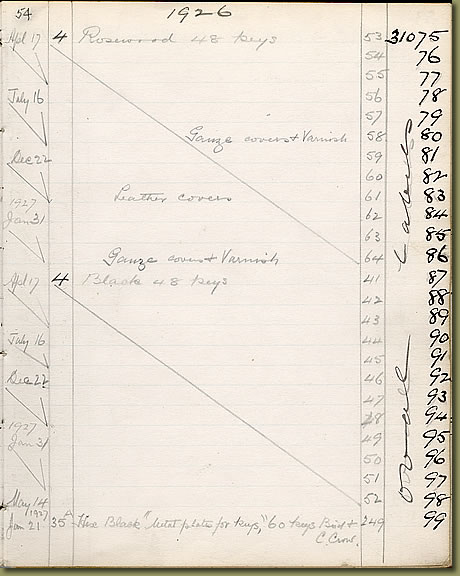 54 1926
Apl 17 4 Rosewood 48 Keys 53 31075
54 76
55 77
July 16 56 78
57 79
Gauze covers + Varnish 58 80
Dec 22 59 81
60 82
1927 Leather covers 61 83
Jan 31 62 84
63 85
Gauze covers + Varnish 64 86
Apl 17 4 Black 48 Keys 41 87
42 88
43 89
July 16 44 90
45 91
Dec 22 46 92
47 93
1927 48 94
Jan 31 49 95
50 96
51 97
May 14 52 98
1927
Jan 21 35 Hex Black "Metal plates for keys," 60 Keys Bird + 249 99
C. Crow.
Labels
oval